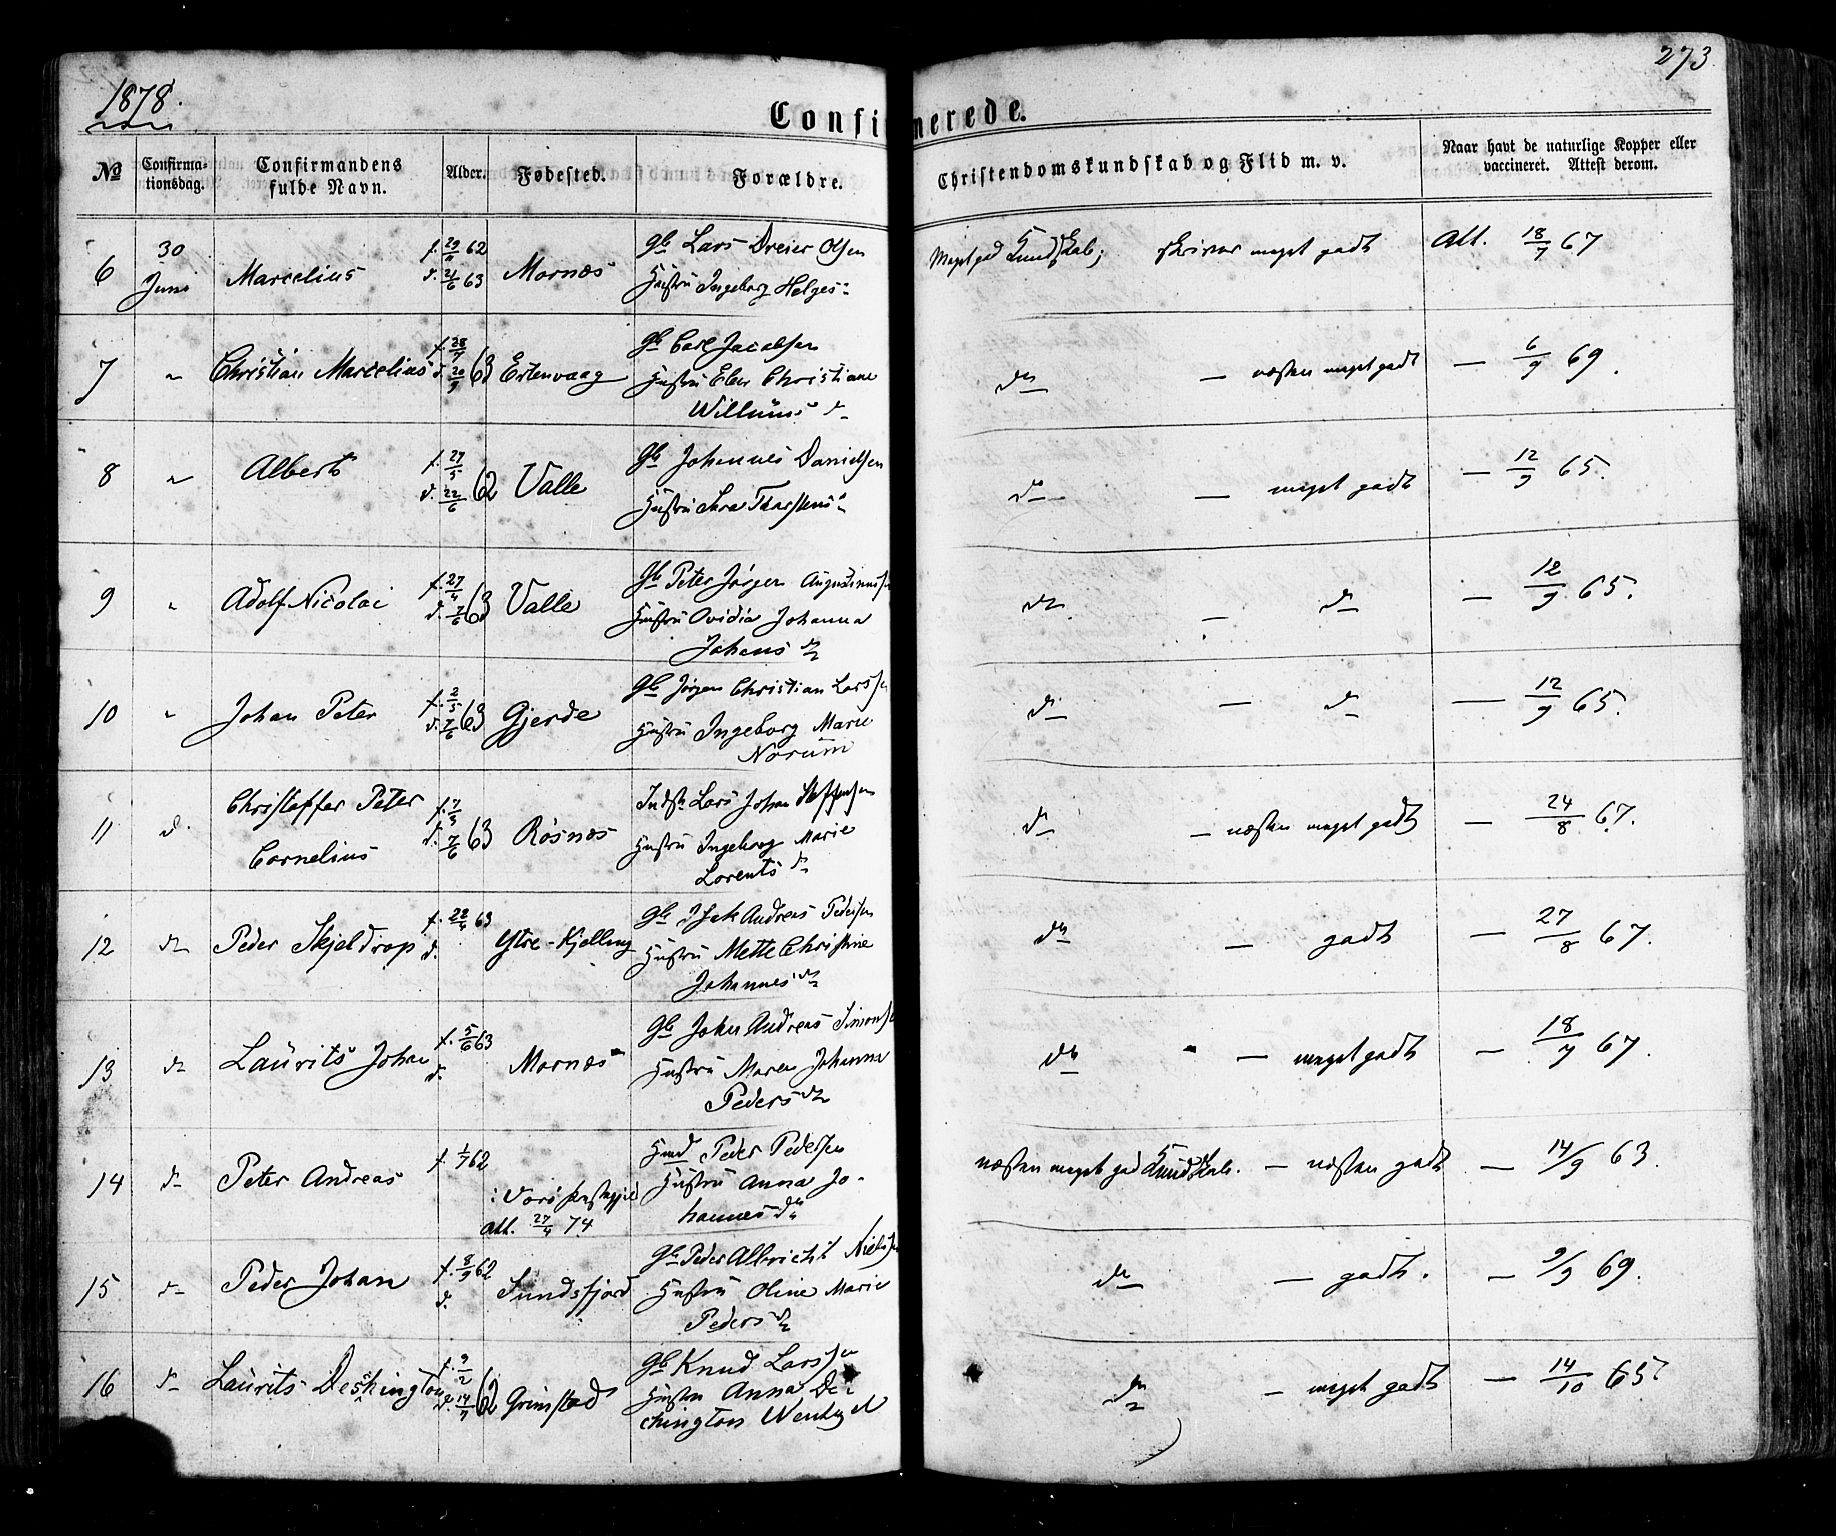 1878.
273
Confirmerede.
No
Confirma-
tionsdag.
Confirmandens
fulde Navn.
Alder.
Fødested.
Forældre.
Christendomskundskab og Flid m. v.
Naar havt de naturlige Kopper eller
vaccineret. Attest derom.
6 30 Juni Marcelius f. 62 d. 21/6 63 Mornæs
Gb Lars Dreier Olsen
Hustru Ingeborg Helges
Meget god Kundskab; skriver meget godt Att. 18/7 67
7 Christian Marcelius f. 28/7 d. 20/9 63 Ertenvaag
Gb Carl Jacobsen
Hustru Christiane
Willums d
do — næsten meget godt — 6/9 69.
8 Albert f. 27/5 d. 22/6 62 Valle
Gb Johannes Danielsen
Hustru
do — meget godt — 12/9 65.
9 Adolf Nicolai f. 27/4 d. 7/6 63 Valle
Gb Peter Jørgen Augustinussen
Hustru Ovidia Johanna
Johans d
do — do — 12/9 65.
10 Johan Peter f. 2/5 d. 7/6 63 Gjerde
Gb Jørgen Christian Larssen
Hustru Ingeborg Marie
Norum
do — do — 12/9 65.
11 d. Christoffer Peter
Cornelius f. 7/3 d. 7/6 63 Røsnæs
Indst. Lars Johan Steffensen
Hustru Ingeborg Marie
Lorents d
do — næsten meget godt — 24/8 67.
12 do Peder Skjeldrop f. 22/4 63 d. Ytre-Kjelling
Gb Isak Andreas Pedersen
Hustru Mette Christine
Johannes d
do — godt — 27/8 67.
13 do Laurits Johan f. 5/6 63 d. Mornæs
Gb Johan Andreas Simonsen
Hustru Maren Johanna
Peders d
do — meget godt — 18/7 67.
14 do Peter Andreas f. 1/7 62
Att. 27/4 74
Peder Pedersen
Hustru Anna Jo-
hannes d
næsten meget god Kundskab. — næsten godt — 14/9 63.
15 do Peder Johan f. 8/9 62 d. Sundsfjord
Gb Peder Albricht Nielsen
Hustru Oline Marie
Peders d
do — godt. — 2/9 69.
16 do Laurits Deshington f. 9/2 d. 14/7 62 Grimstad
Gb Knud Larssen
Hustru Anna De-
chington
do — meget godt — 14/10 65